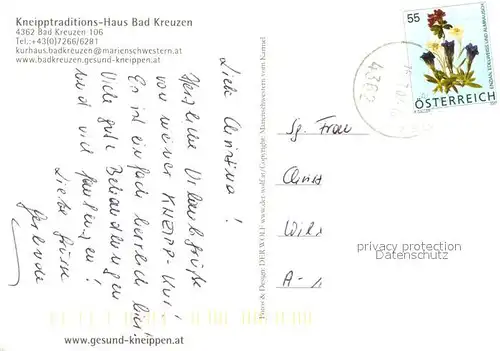 Kneipptraditions-Haus Bad Kreuzen
4362 Bad Kreuzen 106
Tel.:+43(0)7266/6281
kurhaus.badkreuzen@marienschwestern.at
www.badkreuzen.gesund-kneippen.at
Liebe Christina!
Herzliche Urlaubsgrüße
von meiner KNEIPP-Kur!
Es ist einfach herrlich hier!
Viele gute Behandlungen
und viel
Liebe Grüsse
Gerlinde
www.gesund-kneippen.at
Büro & Design DER WOLF www.der-wolf.at/Copyright: Marienschwestern vom Karmel
55
ENZIAN, EDELWEISS UND ALMRAUSCH
ÖSTERREICH
4362
Sg. Frau
Christ
A-
privacy protection
Datenschutz